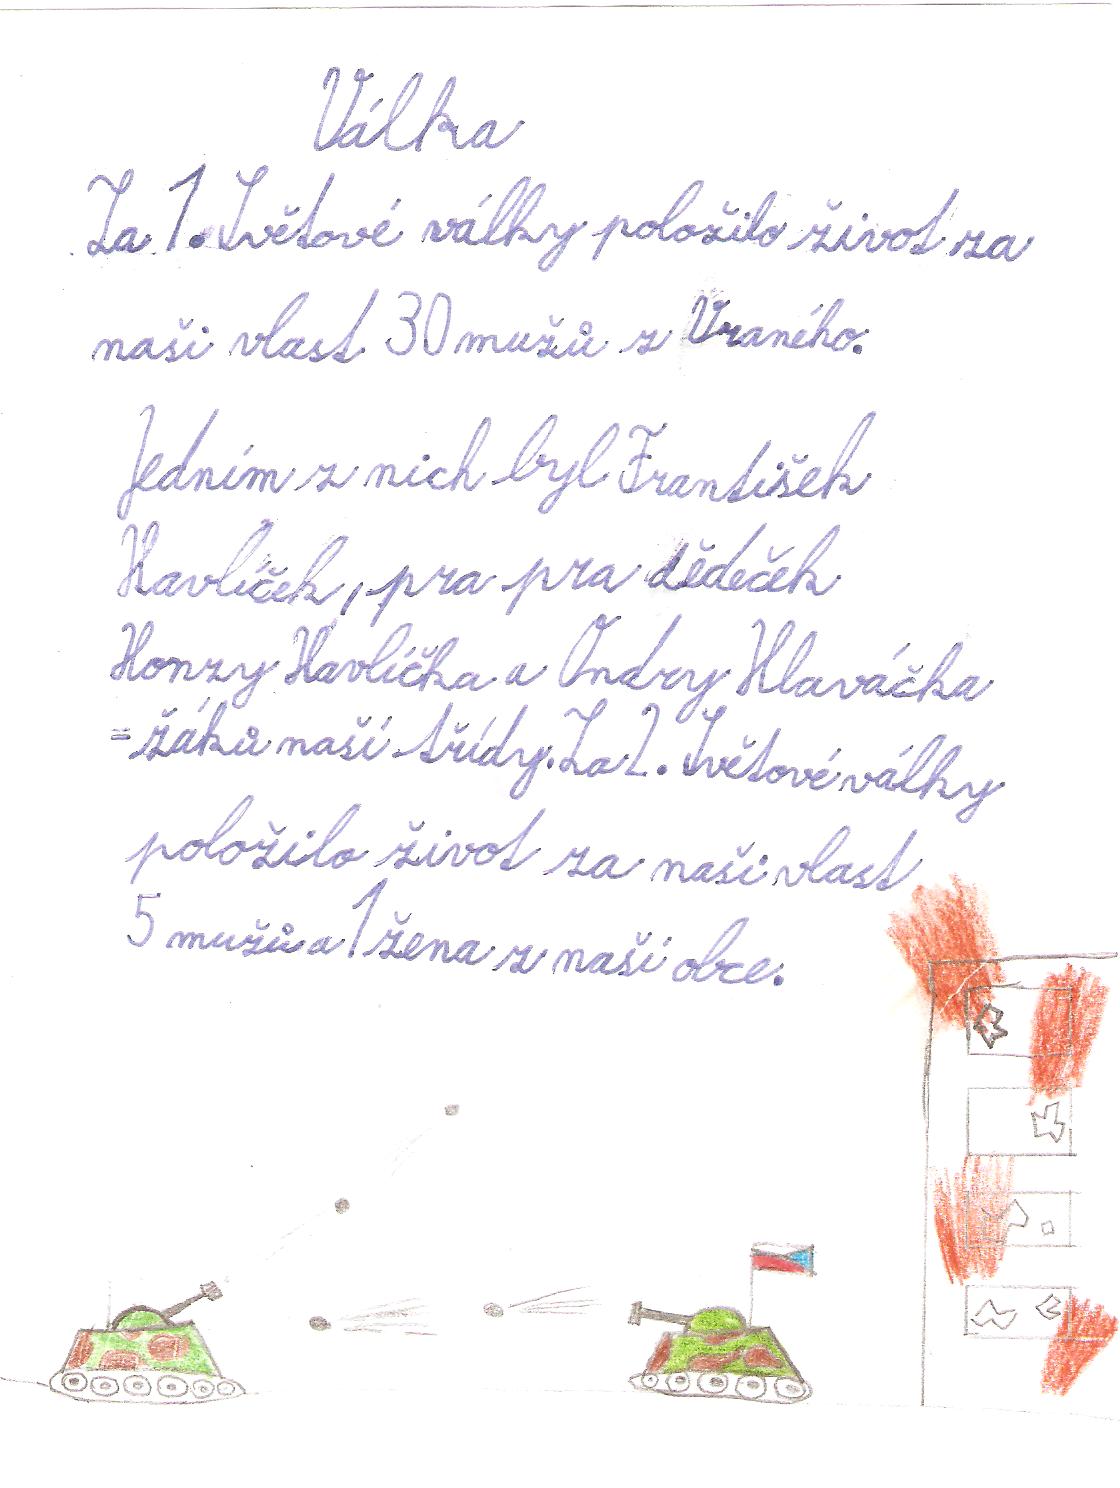 Válka
Za 1. Světové války položilo život za
naši vlast 30 mužů z Vraného.
Jedním z nich byl František
Havlíček, pra pra dědeček
Honzy Havlíčka a Ondry Hlaváčka
= žáků naší třídy. Za 2. Světové války
položilo život za naši vlast
5 mužů a 1 žena z naší obce.